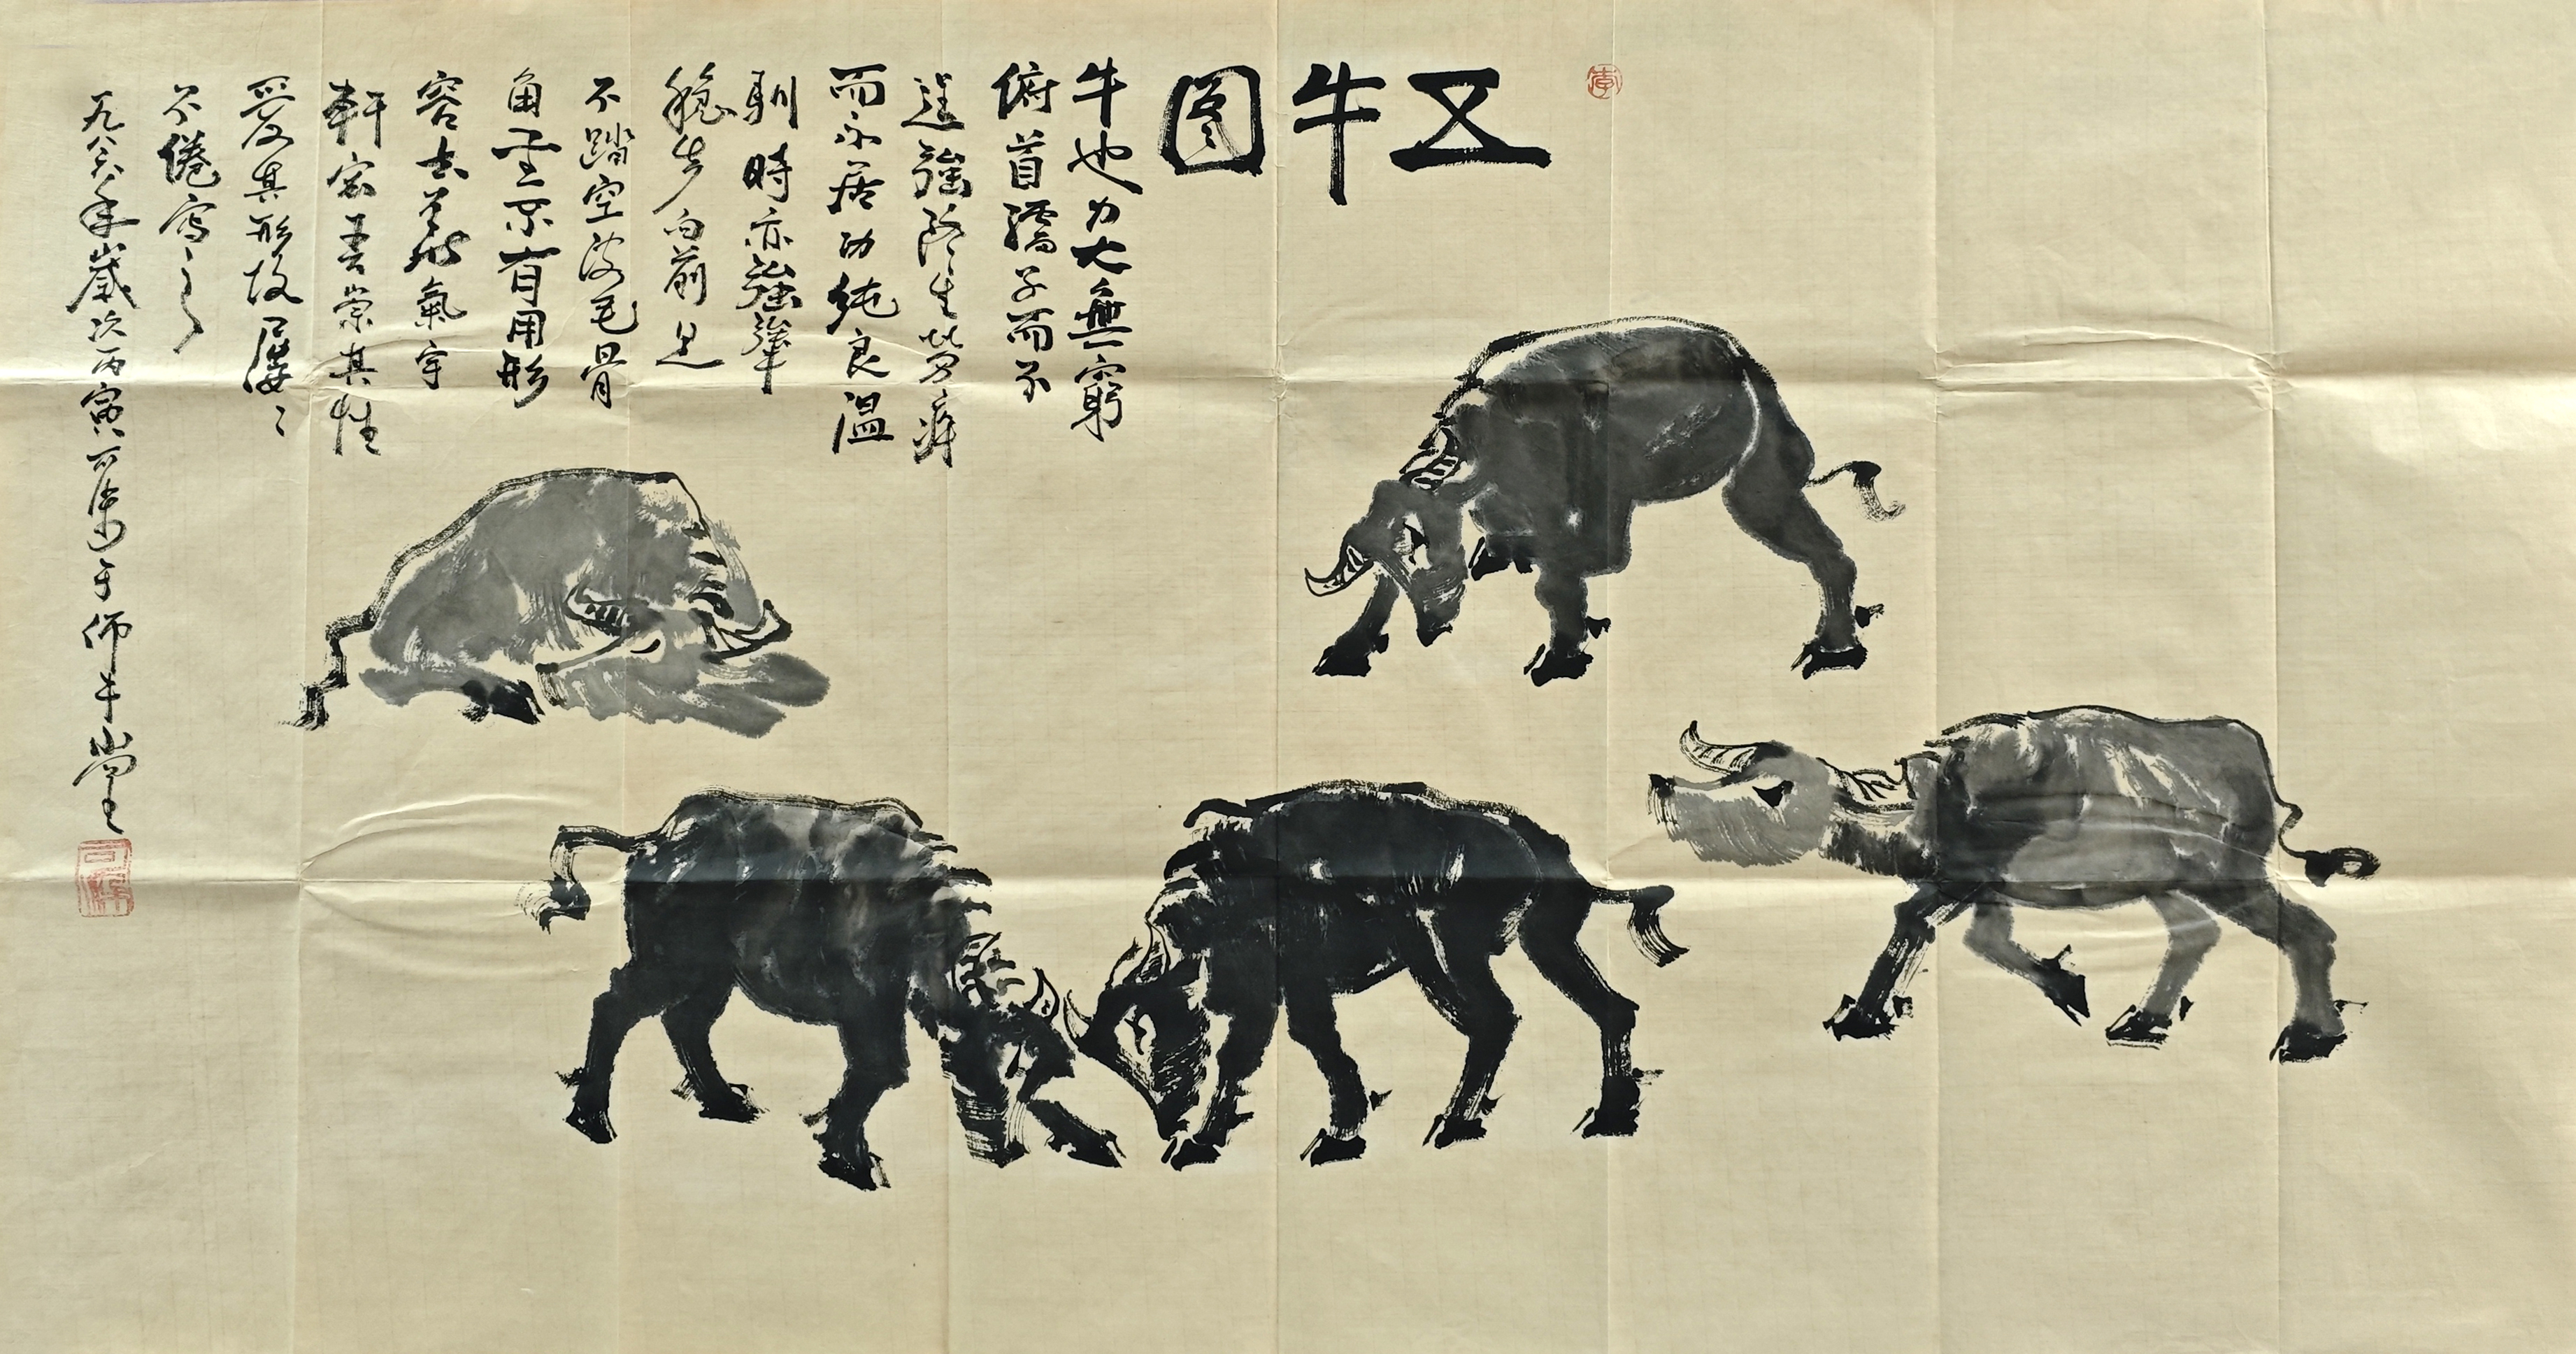 五牛图
牛也力大無窮
俯首孺子而不
逞強終生勞瘁
而不居功純良溫
馴時亦強犟
穩步向前足
不踏空皮毛骨
角不有用形
容古氣宇
軒宏吾崇其性
愛其形故屢〻
不倦寫之
一九八六年歲次丙寅可染于師牛堂
可染